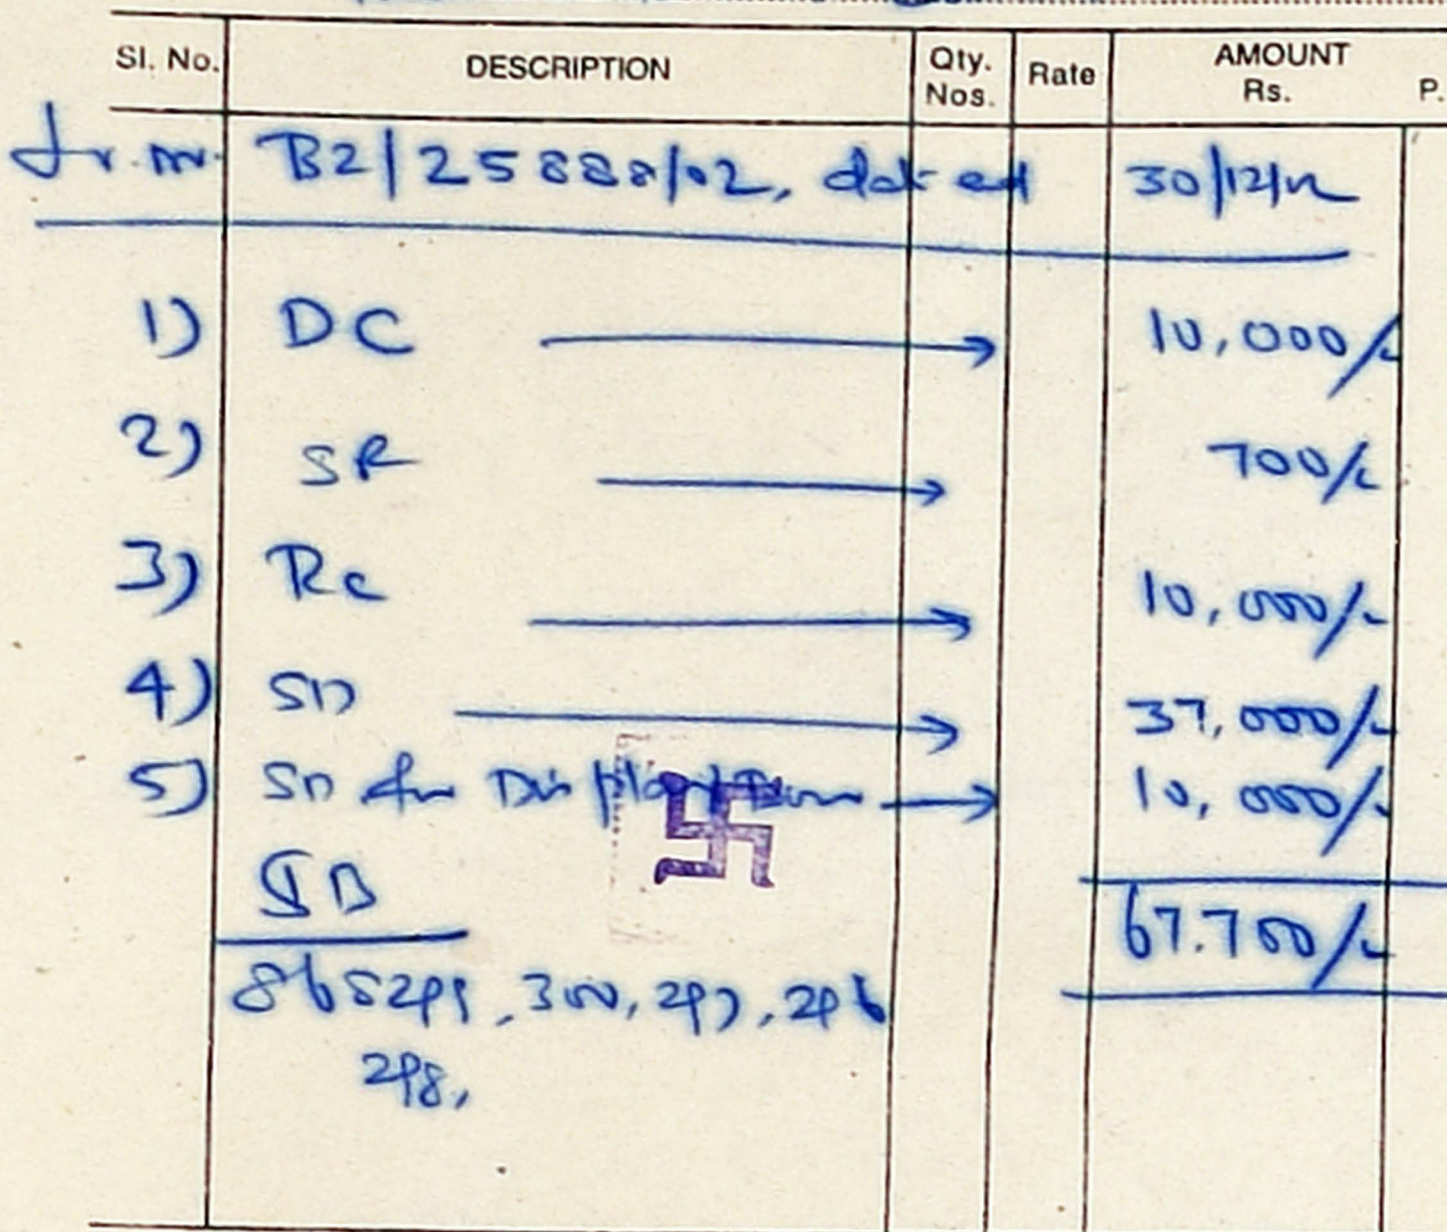 Sl. No. DESCRIPTION Qty. Nos. Rate AMOUNT Rs. P.
B2/25888/02, dated 30/12/02
1) DC 10,000/-
2) SR 700/-
3) Rc 10,000/-
4) SD 37,000/-
5) SD for 10,000/-
SB 67.700/-
865299, 300, 297, 296
298,